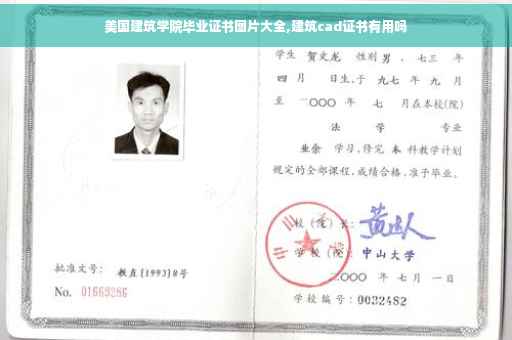 美国建筑学院毕业证书图片大全,建筑cad证书有用吗
学生 贺文龙 性别 男，七三 年
四 月 日生，于 九七 年 九 月
至 二〇〇〇 年 七 月在本校(院)
法 学 专业
业余 学习，修完 本 科教学计划
规定的全部课程，成绩合格，准予毕业。
校(院)长：
学校(院)：中山大学
二〇〇〇 年 七 月 一 日
学校编号：0032482
批准文号：教直[1993]8号
No. 01669286